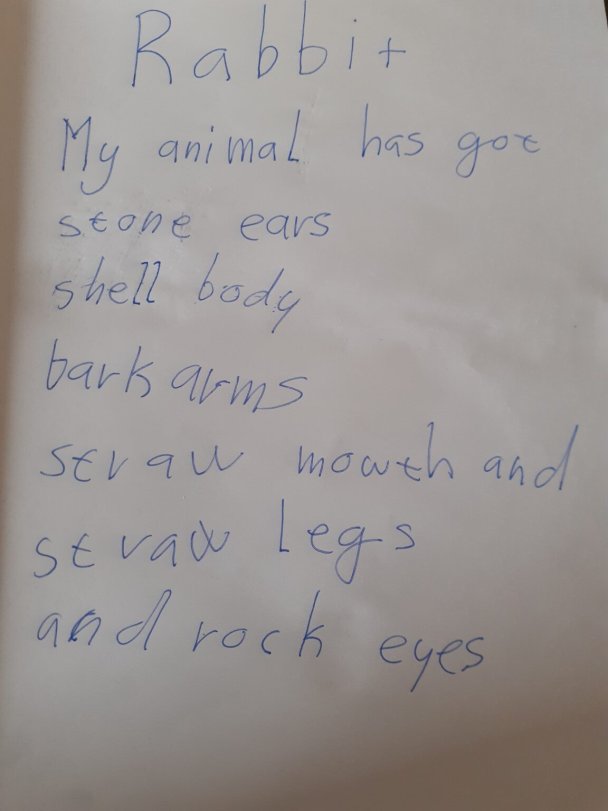 Rabbit
My animal has got
stone ears
shell body
bark arms
straw mowth and
straw legs
and rock eyes